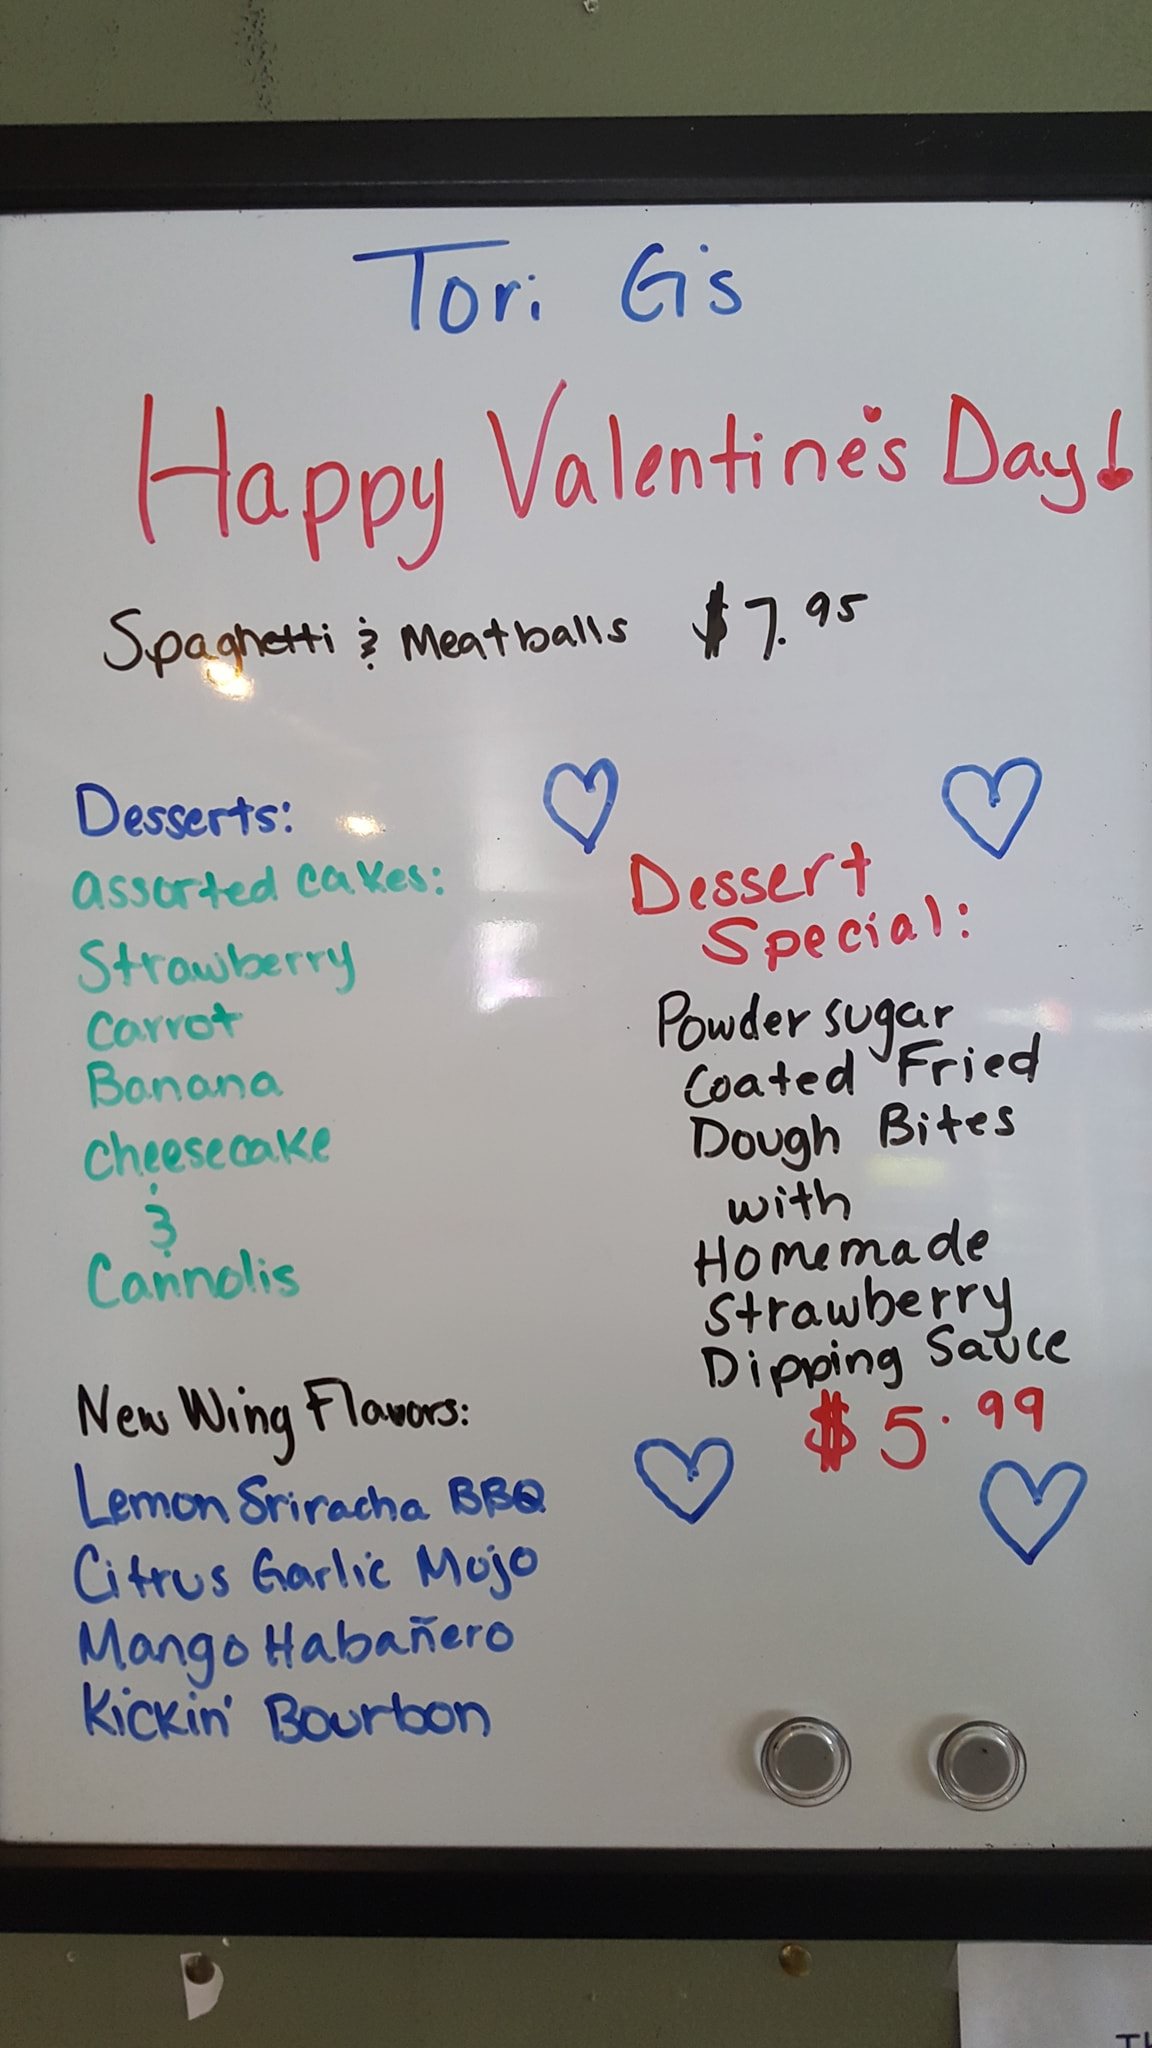 Tori G's
Happy Valentine's Day!
Spaghetti & Meatballs $7.95
Desserts:
assorted cakes:
Strawberry
Carrot
Banana
Cheesecake
&
Cannolis
Dessert
Special:
Powder sugar
Coated Fried
Dough Bites
with
Homemade
Strawberry
Dipping Sauce
$5.99
New Wing Flavors:
Lemon Sriracha BBQ
Citrus Garlic Mojo
Mango Habañero
Kickin' Bourbon